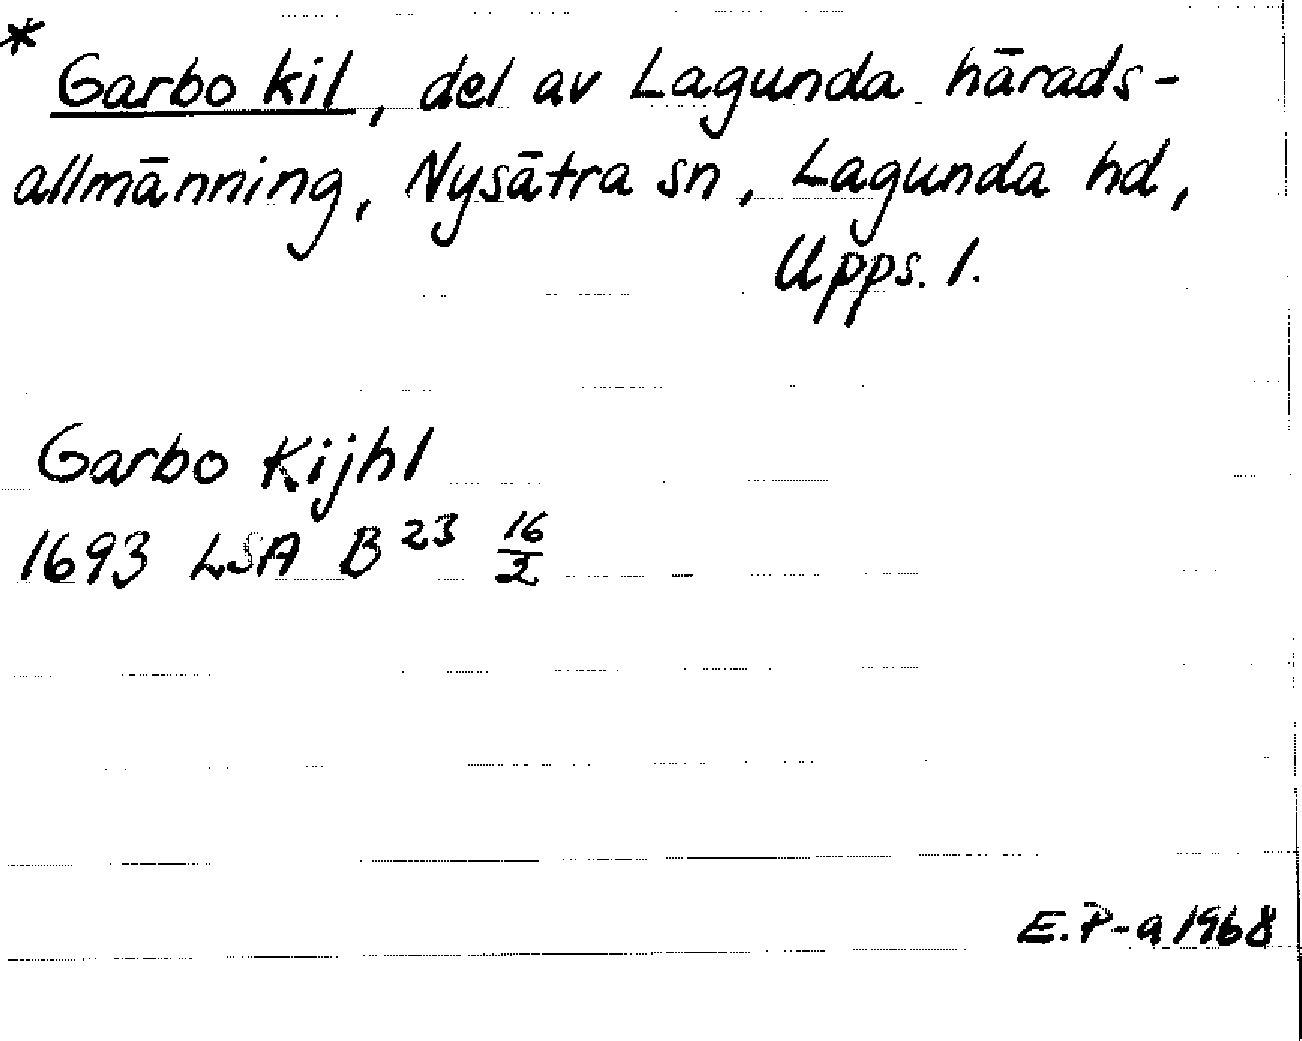 *
Garbo kil, del av Lagunda härads-
allmänning, Nysätra sn, Lagunda hd,
Upps. l.
Garbo Kijhl
1693 LSA B²³ 16/2
E.P-a 1968